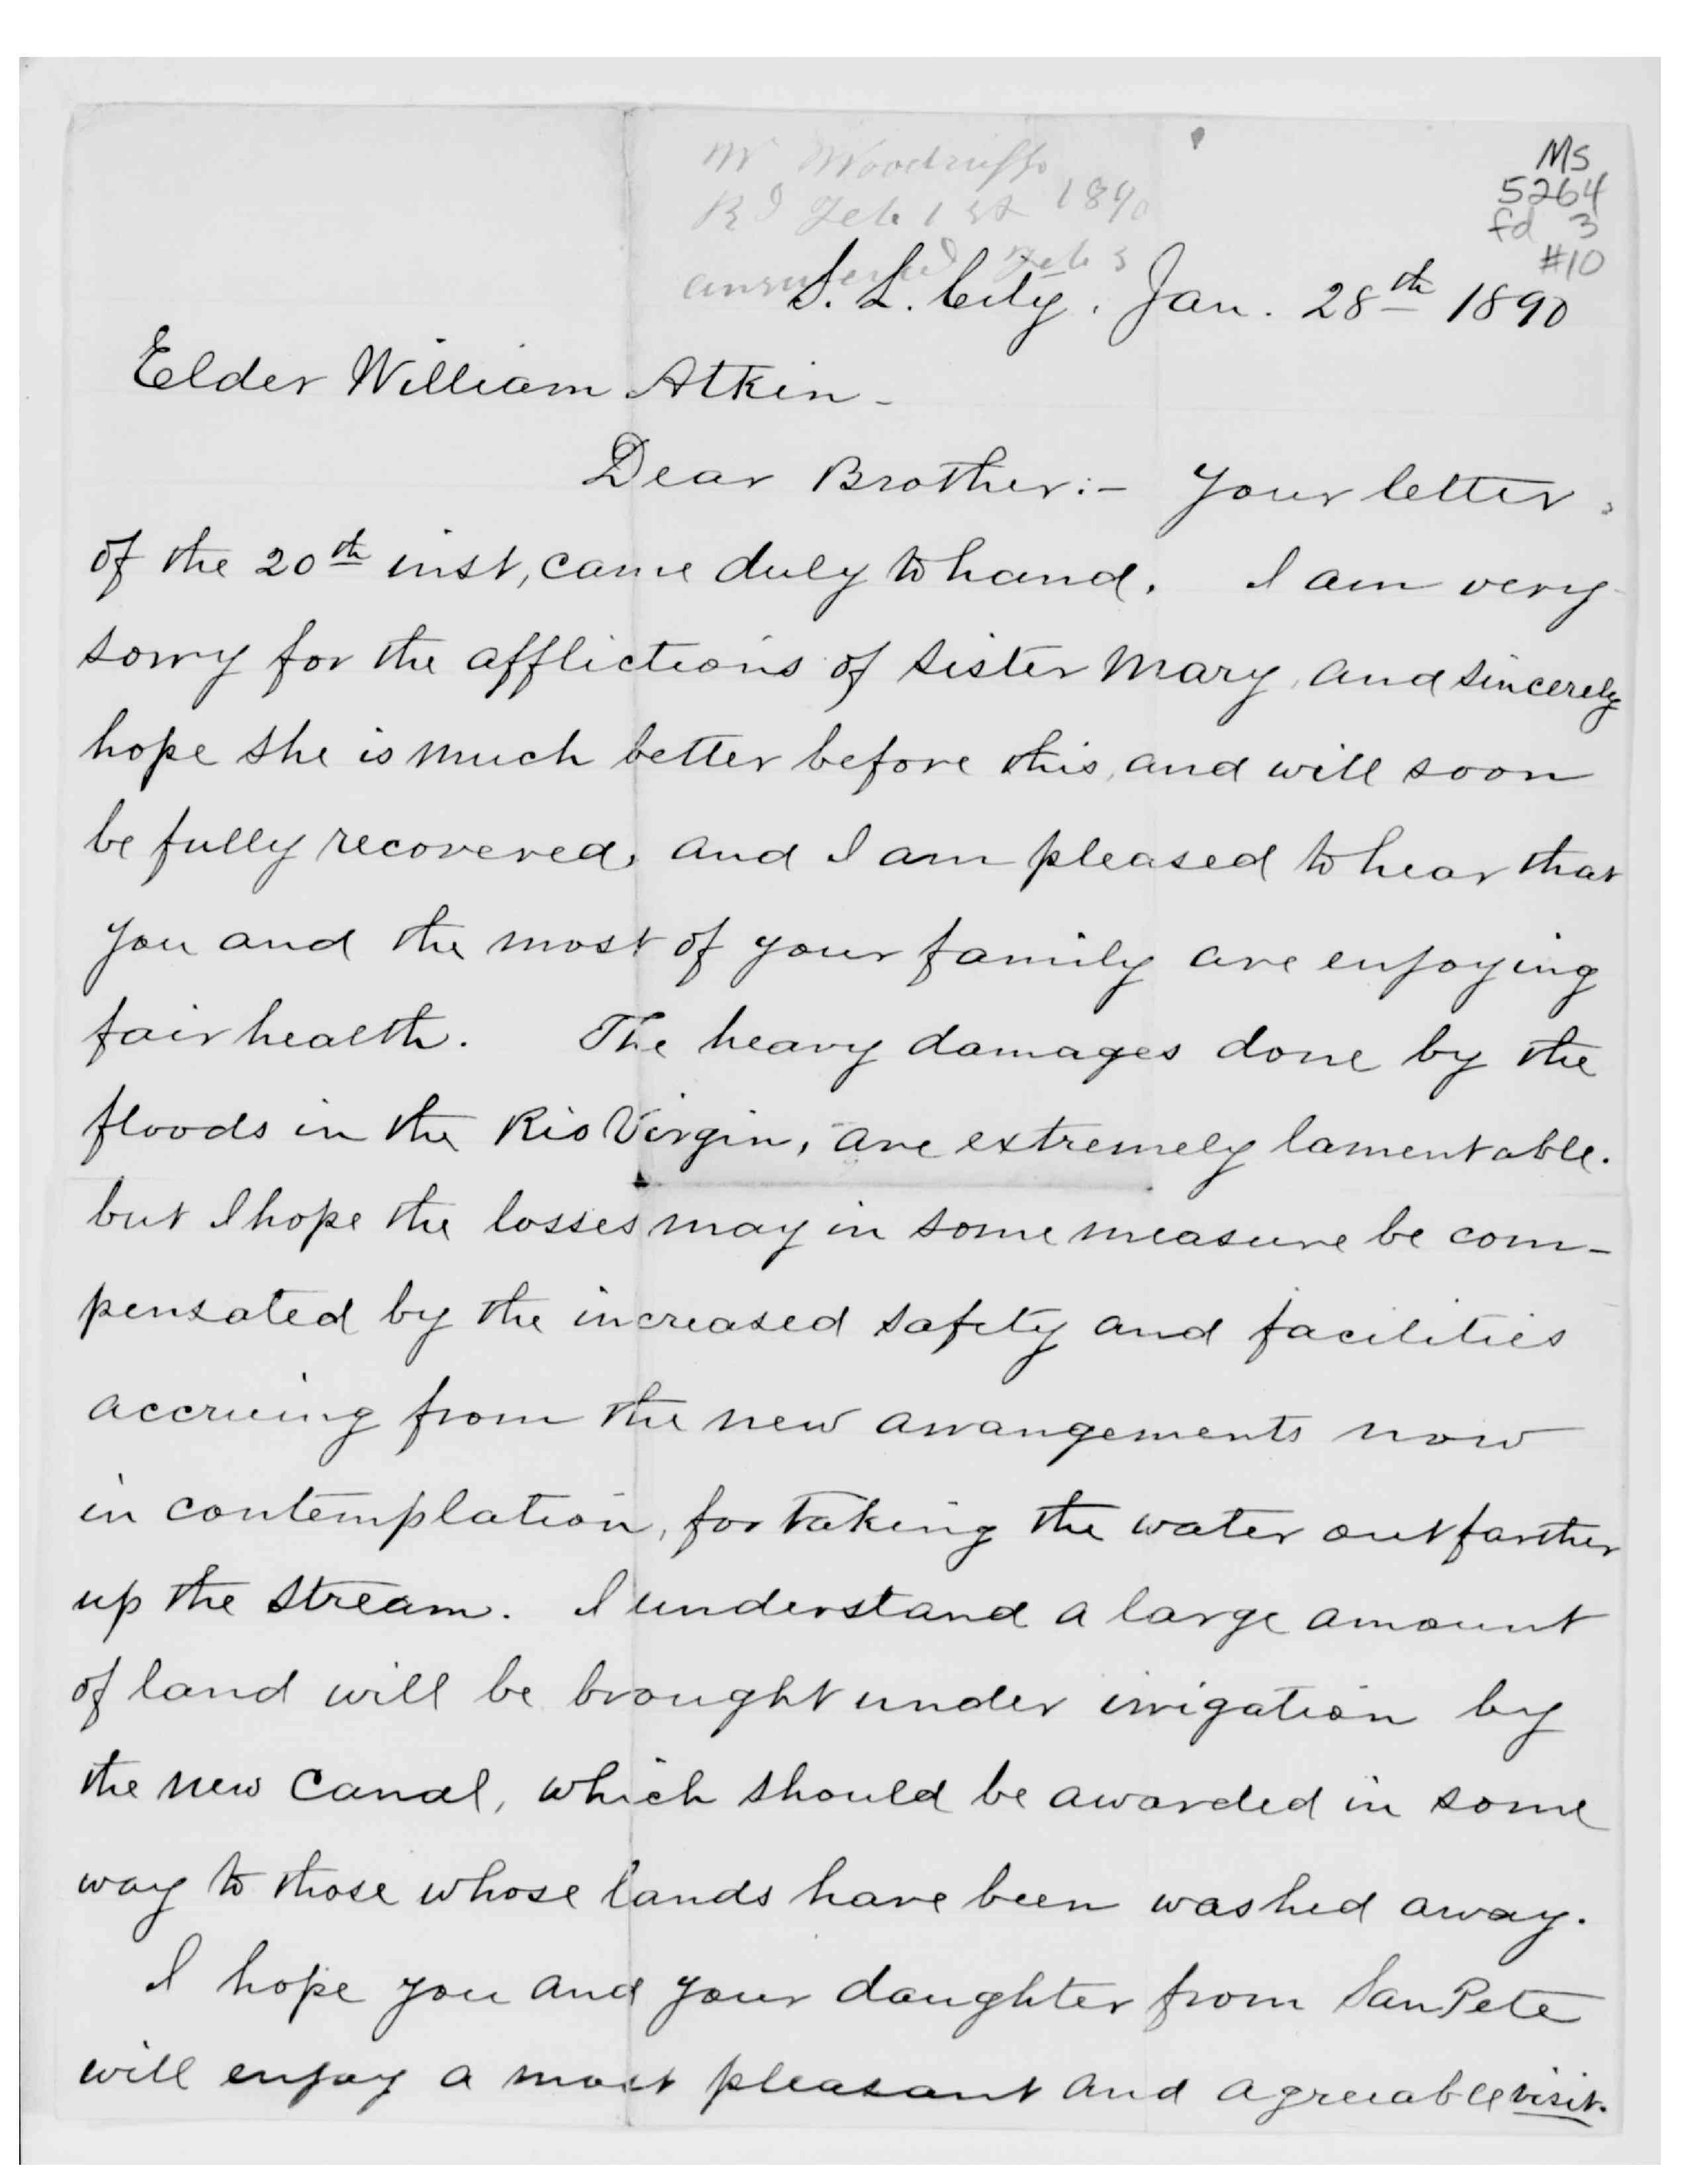 W Woodruffs
Rd Feb 1st 1890
answered Feb 3
Ms
5264
fd 3
#10
S. L. City, Jan. 28th 1890
Elder William Atkin -
Dear Brother:- Your letter
of the 20th inst, came duly to hand. I am very
sorry for the afflictions of sister Mary, and sincerely
hope she is much better before this, and will soon
be fully recovered, and I am pleased to hear that
you and the most of your family are enjoying
fair health. The heavy damages done by the
floods in the Rio Virgin, are extremely lamentable.
but I hope the losses may in some measure be com-
pensated by the increased safety and facilities
accruing from the new arrangements now
in contemplation, for taking the water out farther
up the stream. I understand a large amount
of land will be brought under irrigation by
the new Canal, which should be awarded in some
way to those whose lands have been washed away.
I hope you and your daughter from San Pete
will enjoy a most pleasant and agreeable visit.